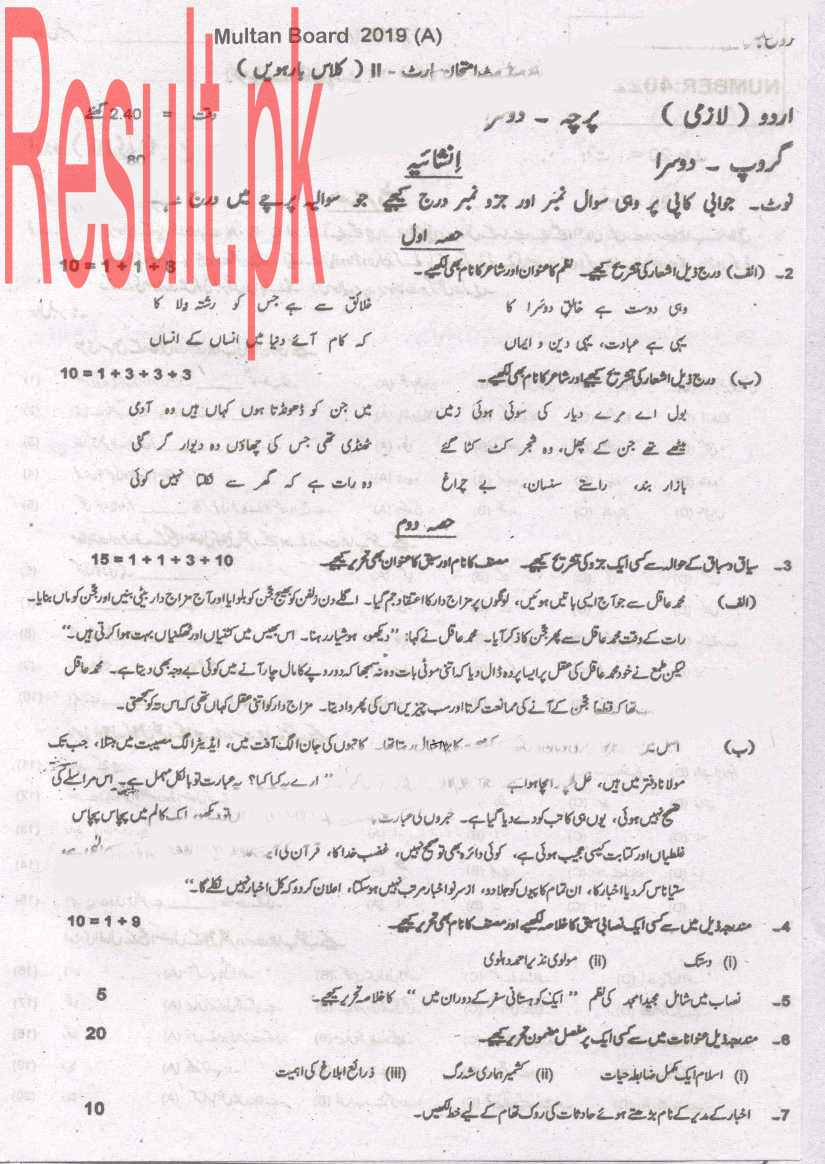 Multan Board 2019 (A)
امتحان انٹر - II ( کلاس بارہویں )
NUMBER:40
اردو ( لازمی ) پرچہ - دوسرا وقت = 2.40 گھنٹے
گروپ - دوسرا اِنشائیہ 80
نوٹ۔ جوابی کاپی پر وہی سوال نمبر اور جزو نمبر درج کیجیے جو سوالیہ پرچے میں درج ہے۔
Result.pk
حصہ اول
2۔ (الف) درج ذیل اشعار کی تشریح کیجیے۔ نظم کا عنوان اور شاعر کا نام بھی لکھیے۔ 10 = 1 + 1 + 3
وہی دوست ہے خالقِ دوسرا کا خلائق سے ہے جس کو رشتہ ولا کا
یہی ہے عبادت، یہی دین و ایماں کہ کام آئے دنیا میں انساں کے انساں
(ب) درج ذیل اشعار کی تشریح کیجیے اور شاعر کا نام بھی لکھیے۔ 10 = 1 + 3 + 3 + 3
بول اے مرے دیار کی سوئی ہوئی زمیں میں جن کو ڈھونڈتا ہوں کہاں ہیں وہ آدمی
بیٹھے تھے جن کے پھل، وہ شجر کٹ کٹا گئے ٹھنڈی تھی جس کی چھاؤں وہ دیوار گر گئی
بازار بند، راستے سنسان، بے چراغ وہ رات ہے کہ گھر سے نکلتا نہیں کوئی
حصہ دوم
3۔ سیاق و سباق کے حوالہ سے کسی ایک جزو کی تشریح کیجیے۔ مصنف کا نام اور سبق کا عنوان بھی تحریر کیجیے۔ 15 = 1 + 1 + 3 + 10
(الف) محمد عاقل سے جو آج ایسی باتیں ہوئیں، لونگوں پر مزاج دار کا اعتقاد جم گیا۔ اگلے دن زلفن کو بھیج جٌن کو بلوایا اور آج مزاج دار بیٹی بنیں اور جٌن کو ماں بنایا۔
رات کے وقت محمد عاقل سے پھر جٌن کا ذکر آیا۔ محمد عاقل نے کہا: "دیکھو، ہوشیار رہنا۔ اس بھیس میں کٹنیاں اور ٹھگنیاں بہت ہوا کرتی ہیں۔"
لیکن طمع نے خود محمد عاقل کی عقل پر ایسا پردہ ڈال دیا کہ اتنی موٹی بات وہ نہ سمجھا کہ دو روپے کا مال چار آنے میں کوئی بے وجہ بھی دیتا ہے۔ محمد عاقل
تھا کہ قطعاً جٌن کے آنے کی ممانعت کرتا اور سب چیزیں اس کی پھروا دیتا۔ مزاج دار کو اتنی عقل کہاں تھی کہ اس تہ کو سمجھتی۔
(ب) کاتبوں کی جان الگ آفت میں، ایڈیٹر الگ مصیبت میں مبتلا، جب تک
مولانا دفتر میں ہیں، "ارے یہ کیا لکھا؟ یہ عبارت تو بالکل مہمل ہے۔ اس مراسلے کی
تصحیح نہیں ہوئی، یوں ہی کاتب کو دے دیا گیا ہے۔ خبروں کی عبارت دیکھو، اک کالم میں پچاس پچاس
غلطیاں اور کتابت کیسی عجیب ہوئی ہے، کوئی دائرہ بھی تو صحیح نہیں، غضب خدا کا، قرآن کی
ستیاناس کر دیا اخبار کا، ان تمام کاپیوں کو جلا دو، از سرِ نو اخبار مرتب نہیں ہو سکتا، اعلان کر دو کہ کل اخبار نہیں نکلے گا۔"
4۔ مندرجہ ذیل میں سے کسی ایک نصابی سبق کا خلاصہ لکھیے اور مصنف کا نام بھی تحریر کیجیے۔ 10 = 1 + 9
(i) دستک (ii) مولوی نذیر احمد دہلوی
5۔ نصاب میں شامل مجید امجد کی نظم "ایک کوہستانی سفر کے دوران میں" کا خلاصہ تحریر کیجیے۔ 5
6۔ مندرجہ ذیل عنوانات میں سے کسی ایک پر مفصل مضمون تحریر کیجیے۔ 20
(i) اسلام ایک مکمل ضابطہ حیات (ii) کشمیر ہماری شہ رگ (iii) ذرائع ابلاغ کی اہمیت
7۔ اخبار کے مدیر کے نام بڑھتے ہوئے حادثات کی روک تھام کے لیے خط لکھیں۔ 10